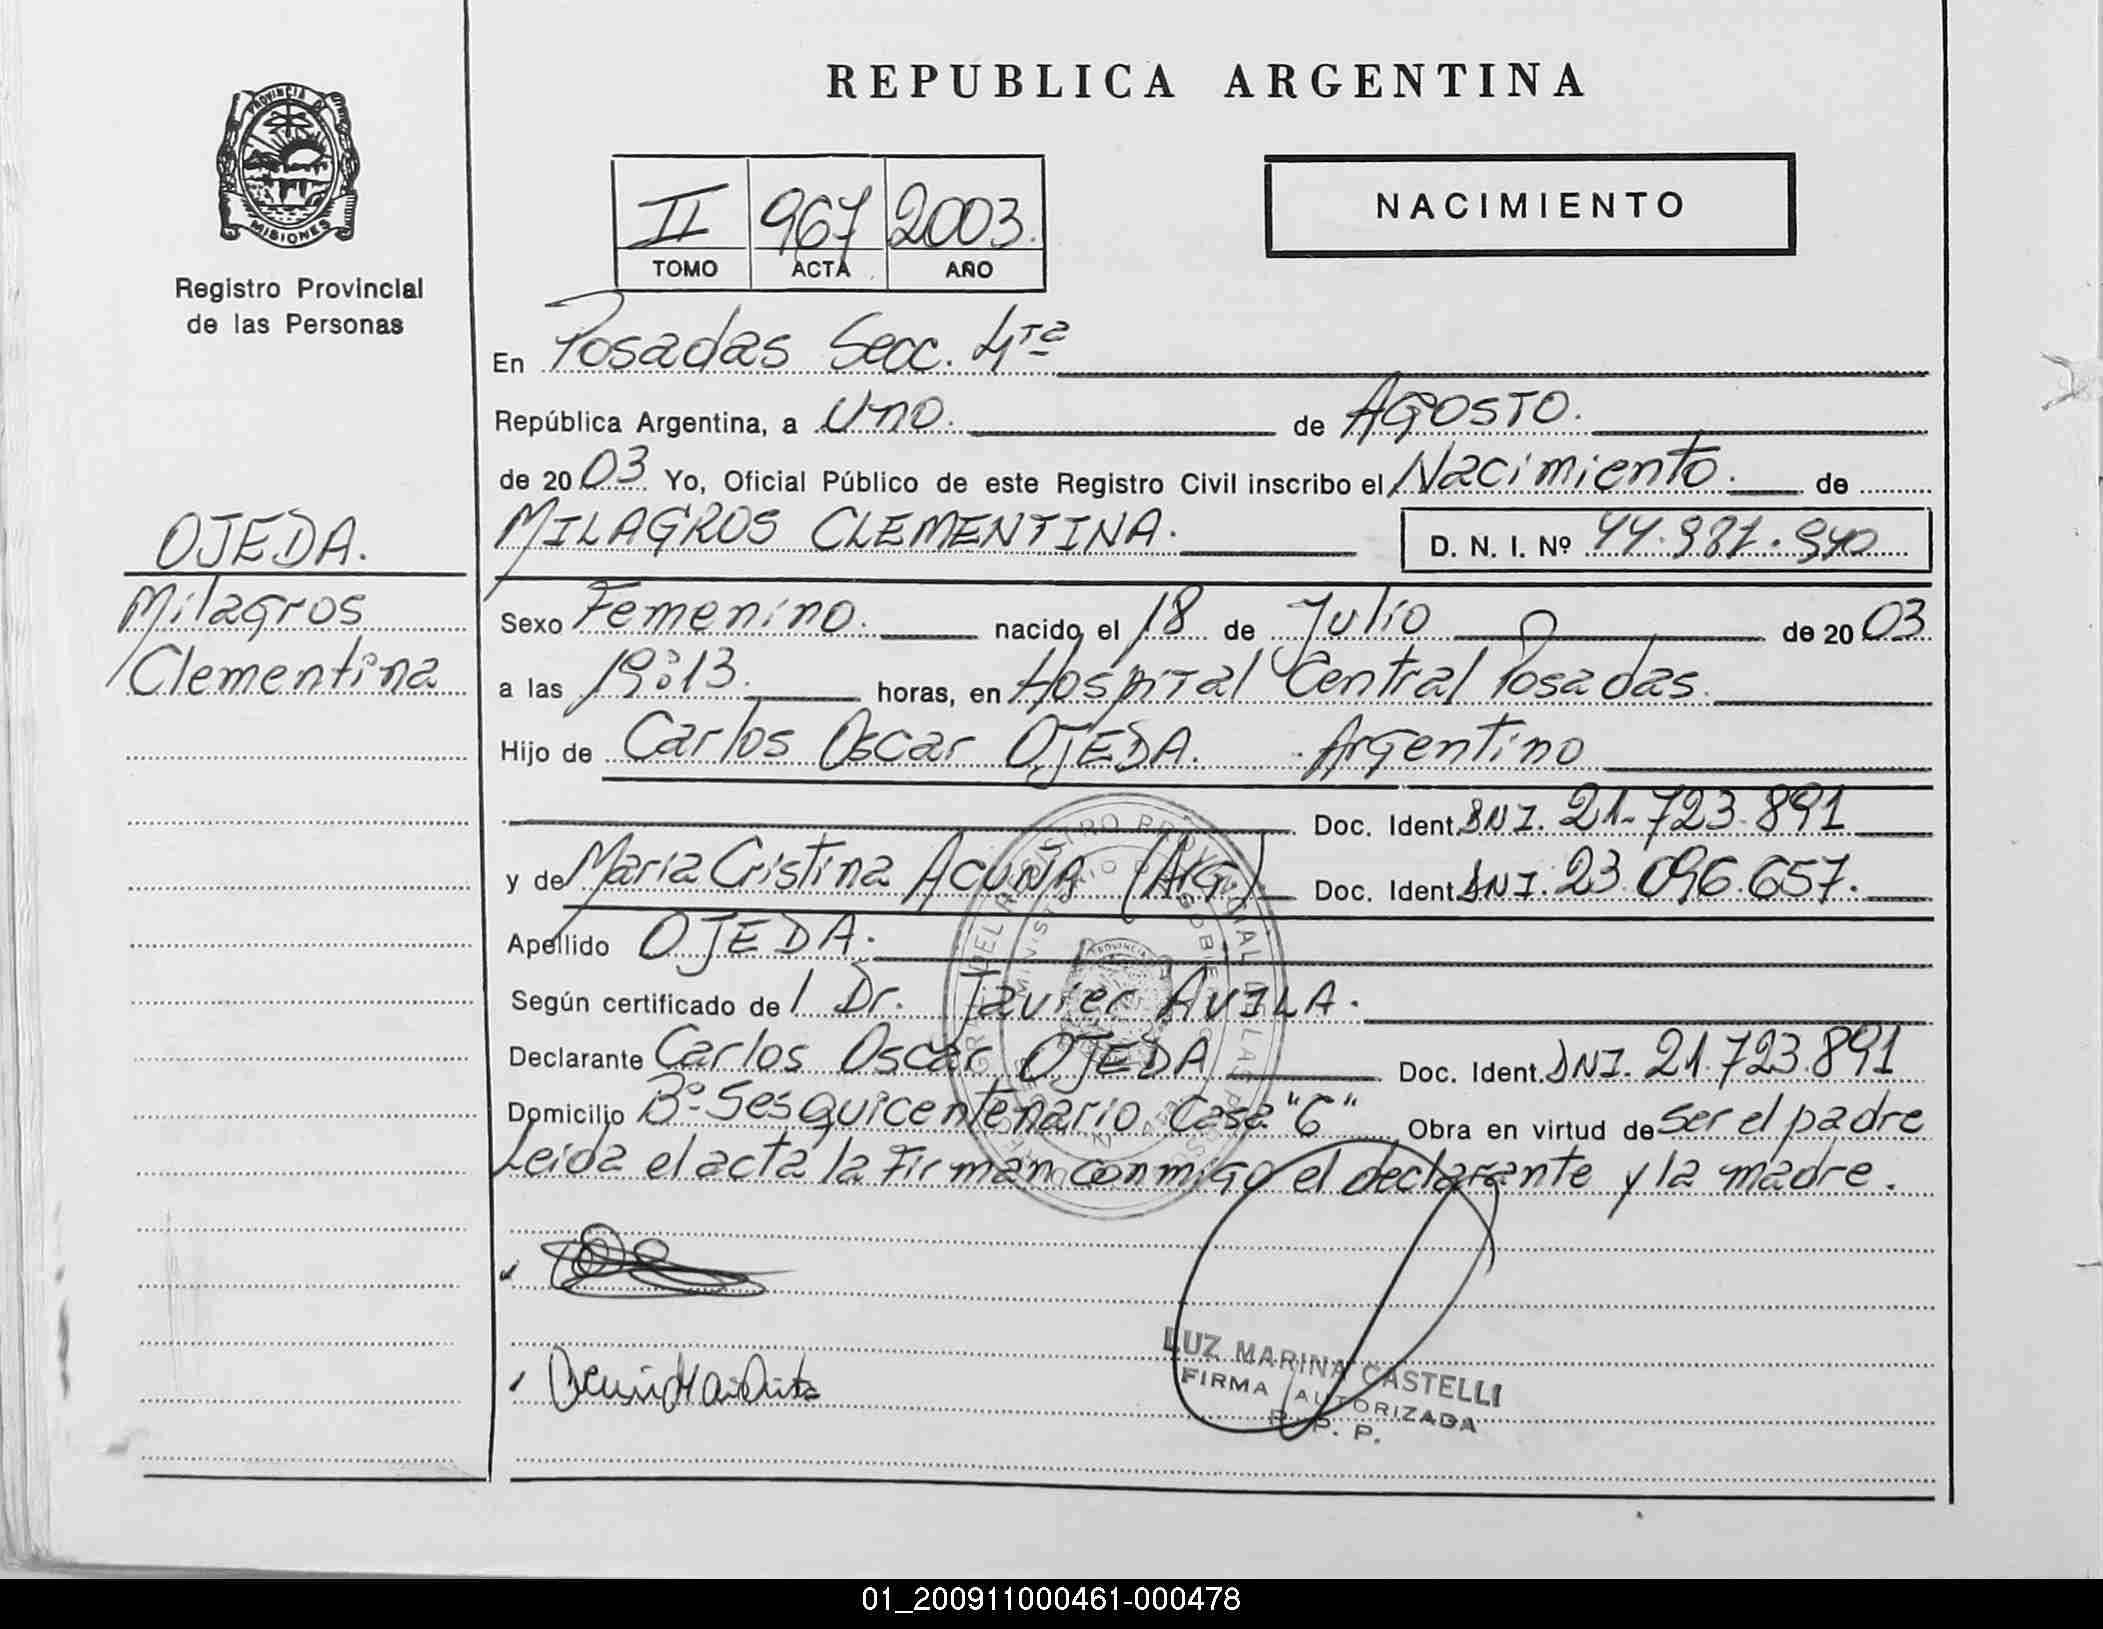 REPUBLICA ARGENTINA
PROVINCIA DE
MISIONES
Registro Provincial
de las Personas
II 967 2003.
TOMO ACTA AÑO
NACIMIENTO
En Posadas Secc. 4ta
República Argentina, a Uno. de AGOSTO.
de 2003 Yo, Oficial Público de este Registro Civil inscribo el Nacimiento. de
MILAGROS CLEMENTINA. D. N. I. Nº 44.981.940
OJEDA.
Milagros
Clementina
Sexo Femenino. nacido el 18 de Julio de 2003
a las 19:13. horas, en Hospital Central Posadas.
Hijo de Carlos Oscar OJEDA. Argentino
Doc. Ident. DNI. 21.723.891
y de Maria Cristina ACUÑA (Arg) Doc. Ident. DNI. 23.096.657.
Apellido OJEDA.
Según certificado de Dr. Javier AVILA.
Declarante Carlos Oscar OJEDA Doc. Ident. DNI. 21.723.891
Domicilio Bº Sesquicentenario Casa "6" Obra en virtud de ser el padre
Leida el acta la Firman conmigo el declarante y la madre.
LUZ MARINA CASTELLI
FIRMA AUTORIZADA
R. P. P.
01_200911000461-000478